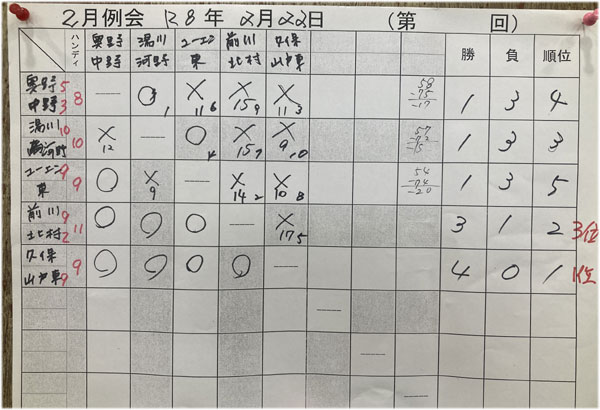 2月例会 R8年 2月22日 (第 回)
ハンディ 奥野 中野 湯川 河野 ユーエン 東 前川 北村 久保 山戸東 勝 負 順位
奥野5 中野3 8 — ○ 1 × 11 6 × 15 9 × 11 3 58 -75 -17 1 3 4
湯川10 河野 10 × 12 — ○ 4 × 15 7 × 9 10 57 -72 -15 1 3 3
ユーエン9 東 9 ○ × 9 — × 14 2 × 10 8 54 -74 -20 1 3 5
前川9 北村2 11 ○ ○ ○ — × 17 5 3 1 2 3位
久保 山戸東9 9 ○ ○ ○ ○ — 4 0 1 1位